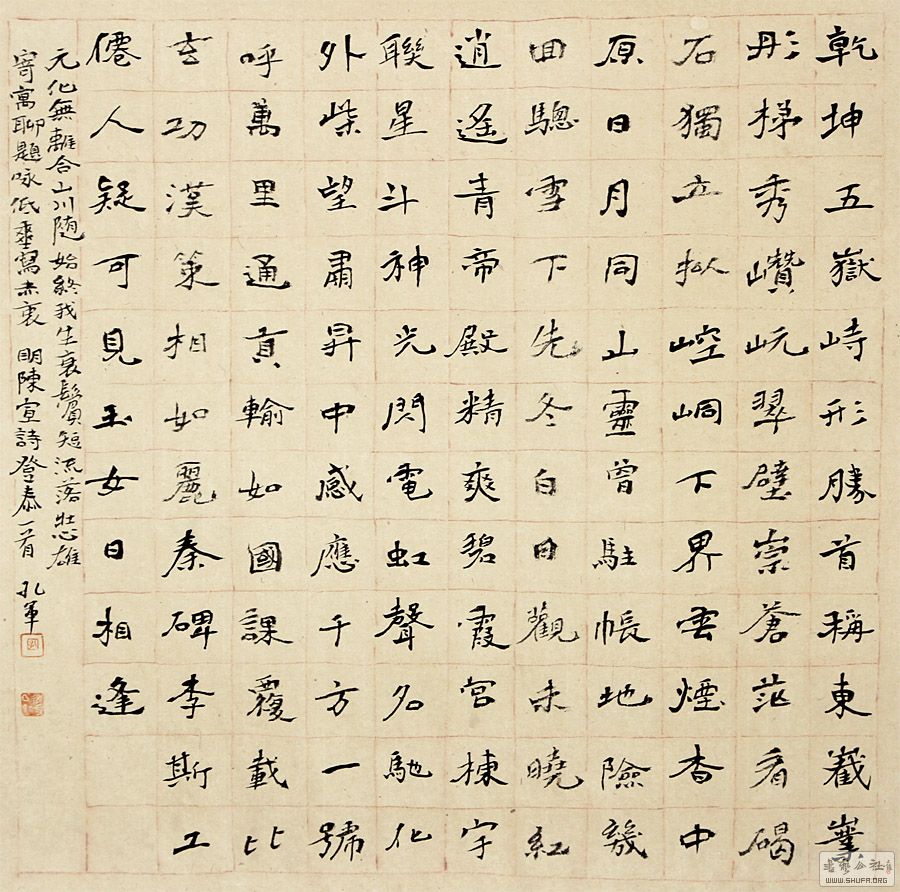 乾坤五嶽峙形勝首稱東巀嶭
彤梯秀巑岏翠壁崇蒼茫看碣
石獨立拟崆峒下界雲煙杳中
原日月同山靈曾駐帳地險幾
回驄雪下先冬白日觀未曉紅
逍遙青帝殿精爽碧霞宮棟宇
聯星斗神光閃電虹聲名馳化
外柴望肅昇中感應千方一號
呼萬里通貢輸如國課覆載比
玄功漢策相如麗秦碑李斯工
僊人疑可見玉女日相逢
元化無離合山川随始終我生衰鬢短流落壯悲雄
寄寓聊題咏低垂寫赤衷 明陳宣詩登泰一首 孔軍
WWW.SHUFA.ORG